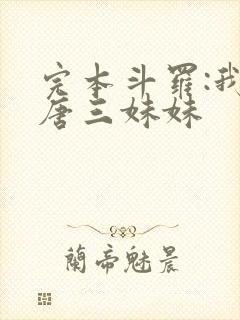 完本斗罗:我
唐三妹妹
蘭帝魅晨